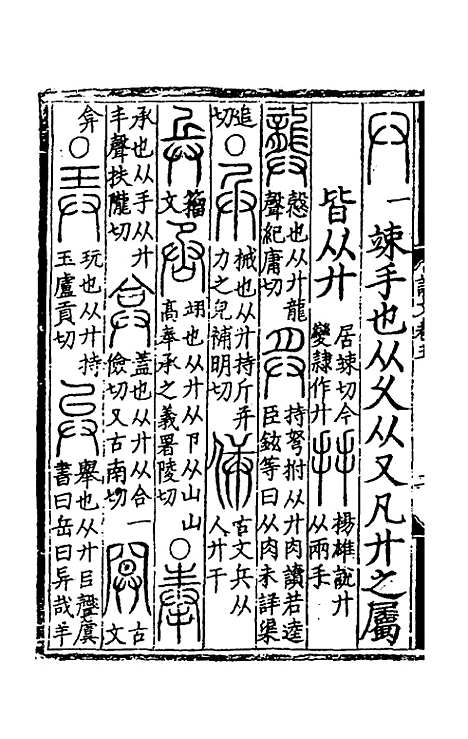 廾 一 竦手也从𠂇从又凡廾之屬
皆从廾 居竦切今變隷作廾 𢪒 揚雄説廾从兩手
龏 慤也从廾龍聲紀庸切 𢌳 持弩拊从廾肉讀若逵臣鉉等曰从肉未詳渠
追切 ○ 兵 械也从廾持斤并力之皃補明切 㑂 古文兵从人廾干
兵 籀文 丞 翊也从廾从卪从山山高奉承之義署陵切 ○ 奉
承也从手从廾丰聲扶隴切 弇 蓋也从廾从合一儉切又古南切 𢍕 古文
弇 ○ 弄 玩也从廾持玉盧貢切 异 舉也从廾㠯聲虞書曰岳曰异哉羊